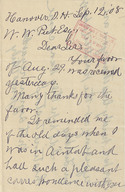 Hanover, N.H. Sep. 12, 08
W. W. Esq.
Dear Sir
Your favor
of Aug. 29, was received
yesterday.
Many thanks for the
favor.
It reminded me
of the old days when I
was in and
had such a pleasant
correspondence with